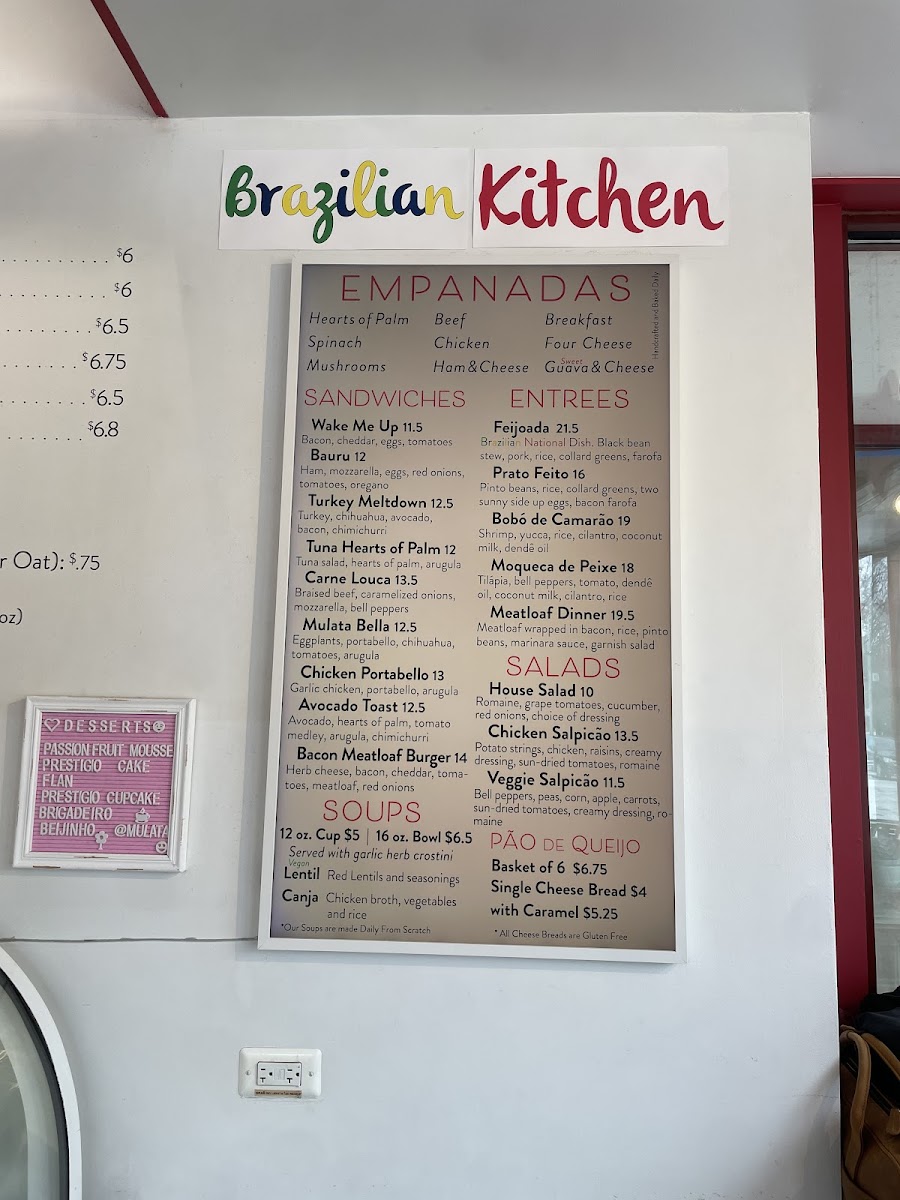 Brazilian Kitchen
$6
$6
$6.5
$6.75
$6.5
$6.8
r Oat): $.75
oz)
♡ DESSERTS
PASSION FRUIT MOUSSE
PRESTIGIO CAKE
FLAN
PRESTIGIO CUPCAKE
BRIGADEIRO
BEIJINHO @MULATA
EMPANADAS
Handcrafted and Baked Daily
Hearts of Palm Beef Breakfast
Spinach Chicken Four Cheese
Sweet
Mushrooms Ham & Cheese Guava & Cheese
SANDWICHES
Wake Me Up 11.5
Bacon, cheddar, eggs, tomatoes
Bauru 12
Ham, mozzarella, eggs, red onions,
tomatoes, oregano
Turkey Meltdown 12.5
Turkey, chihuahua, avocado,
bacon, chimichurri
Tuna Hearts of Palm 12
Tuna salad, hearts of palm, arugula
Carne Louca 13.5
Braised beef, caramelized onions,
mozzarella, bell peppers
Mulata Bella 12.5
Eggplants, portabello, chihuahua,
tomatoes, arugula
Chicken Portabello 13
Garlic chicken, portabello, arugula
Avocado Toast 12.5
Avocado, hearts of palm, tomato
medley, arugula, chimichurri
Bacon Meatloaf Burger 14
Herb cheese, bacon, cheddar, toma-
toes, meatloaf, red onions
SOUPS
12 oz. Cup $5 | 16 oz. Bowl $6.5
Served with garlic herb crostini
Vegan
Lentil Red Lentils and seasonings
Canja Chicken broth, vegetables
and rice
*Our Soups are made Daily From Scratch
ENTREES
Feijoada 21.5
Brazilian National Dish. Black bean
stew, pork, rice, collard greens, farofa
Prato Feito 16
Pinto beans, rice, collard greens, two
sunny side up eggs, bacon farofa
Bobó de Camarão 19
Shrimp, yucca, rice, cilantro, coconut
milk, dendê oil
Moqueca de Peixe 18
Tilápia, bell peppers, tomato, dendê
oil, coconut milk, cilantro, rice
Meatloaf Dinner 19.5
Meatloaf wrapped in bacon, rice, pinto
beans, marinara sauce, garnish salad
SALADS
House Salad 10
Romaine, grape tomatoes, cucumber,
red onions, choice of dressing
Chicken Salpicão 13.5
Potato strings, chicken, raisins, creamy
dressing, sun-dried tomatoes, romaine
Veggie Salpicão 11.5
Bell peppers, peas, corn, apple, carrots,
sun-dried tomatoes, creamy dressing, ro-
maine
PÃO DE QUEIJO
Basket of 6 $6.75
Single Cheese Bread $4
with Caramel $5.25
* All Cheese Breads are Gluten Free